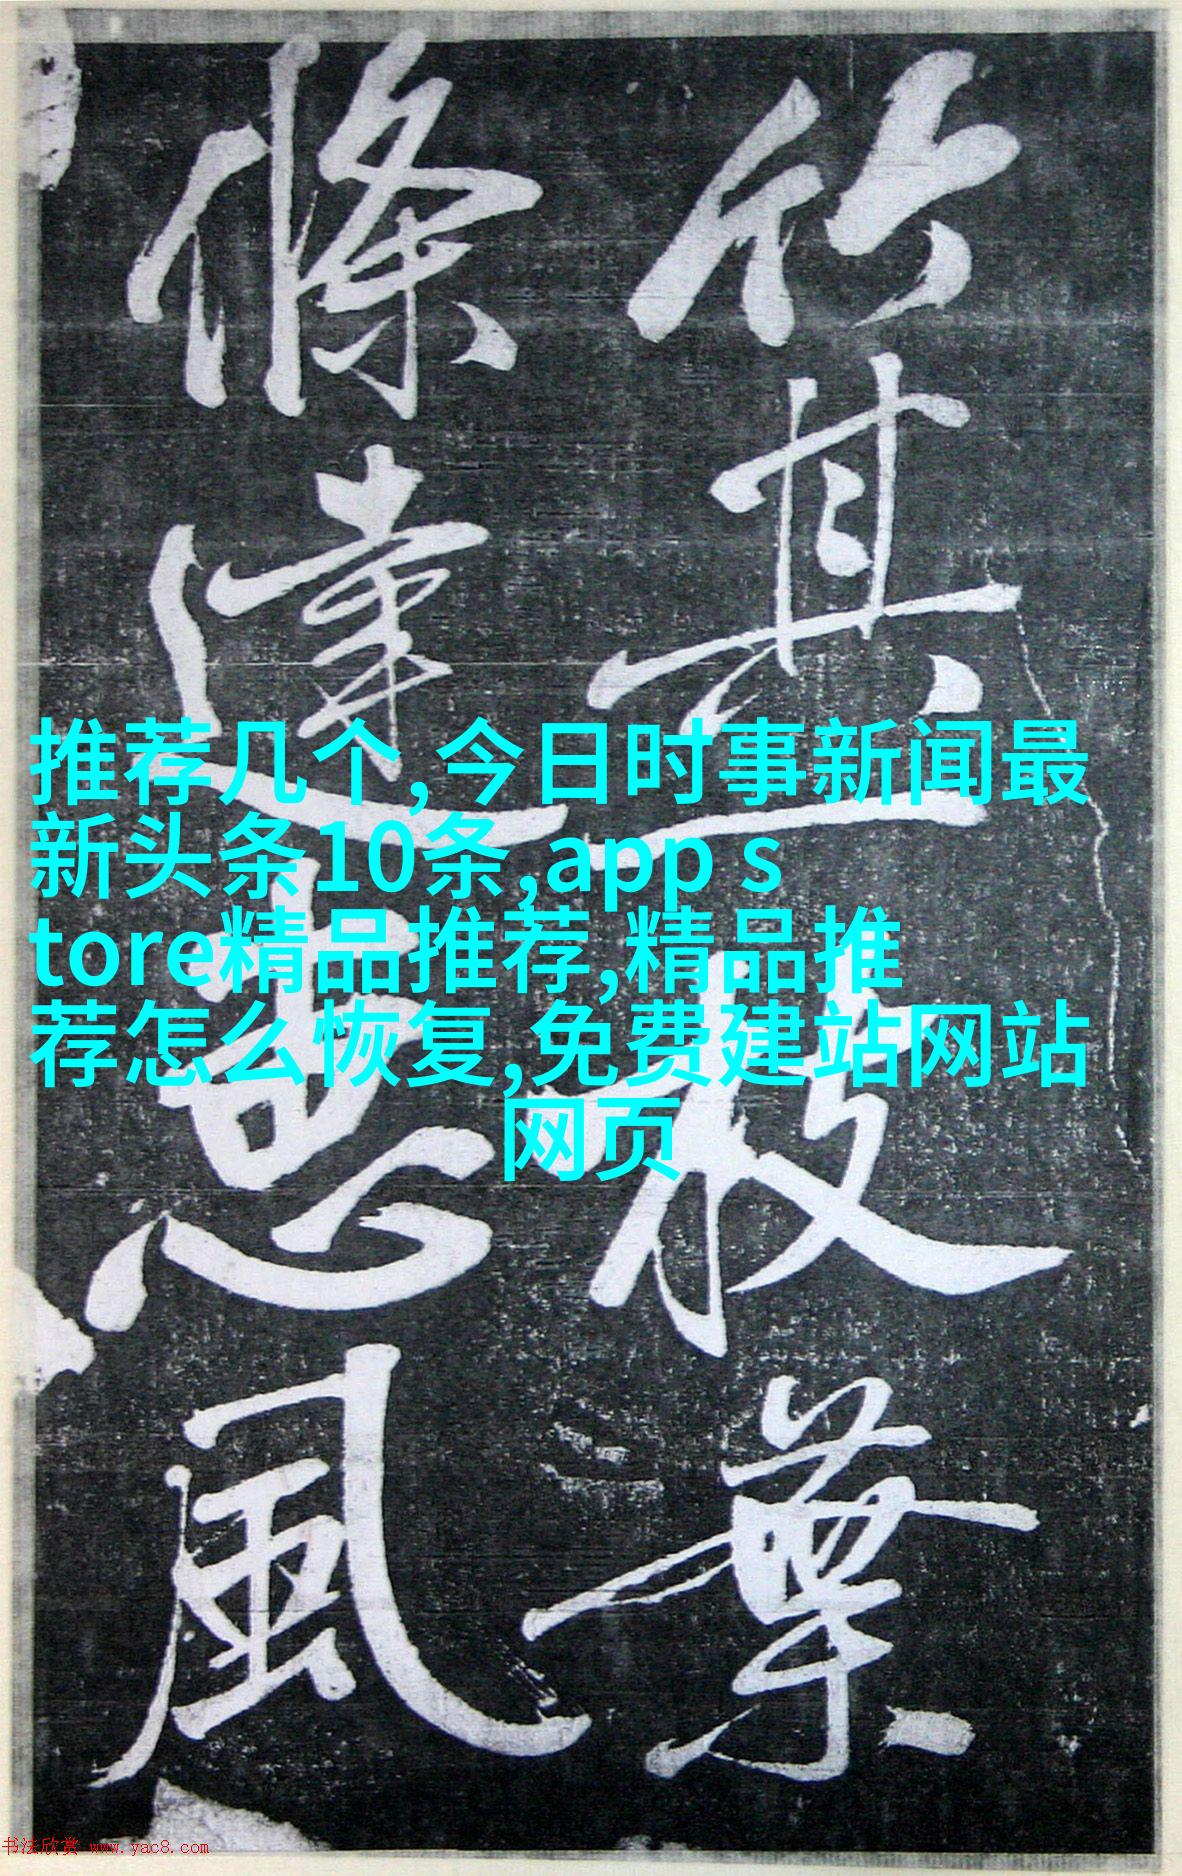 竹其枝葉
條達惠風
推荐几个,今日时事新闻最
新头条10条,app s
tore精品推荐,精品推
荐怎么恢复,免费建站网站
网页
书法欣赏 www.yac8.com